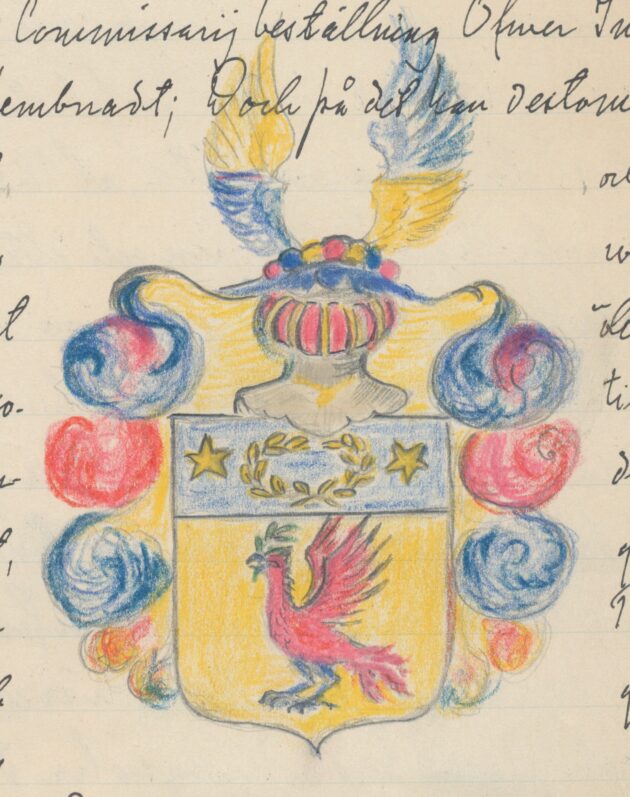 Commissarij beställning Öfver In
embnadt; Doch på det han destom
w
t
o-
ti
d